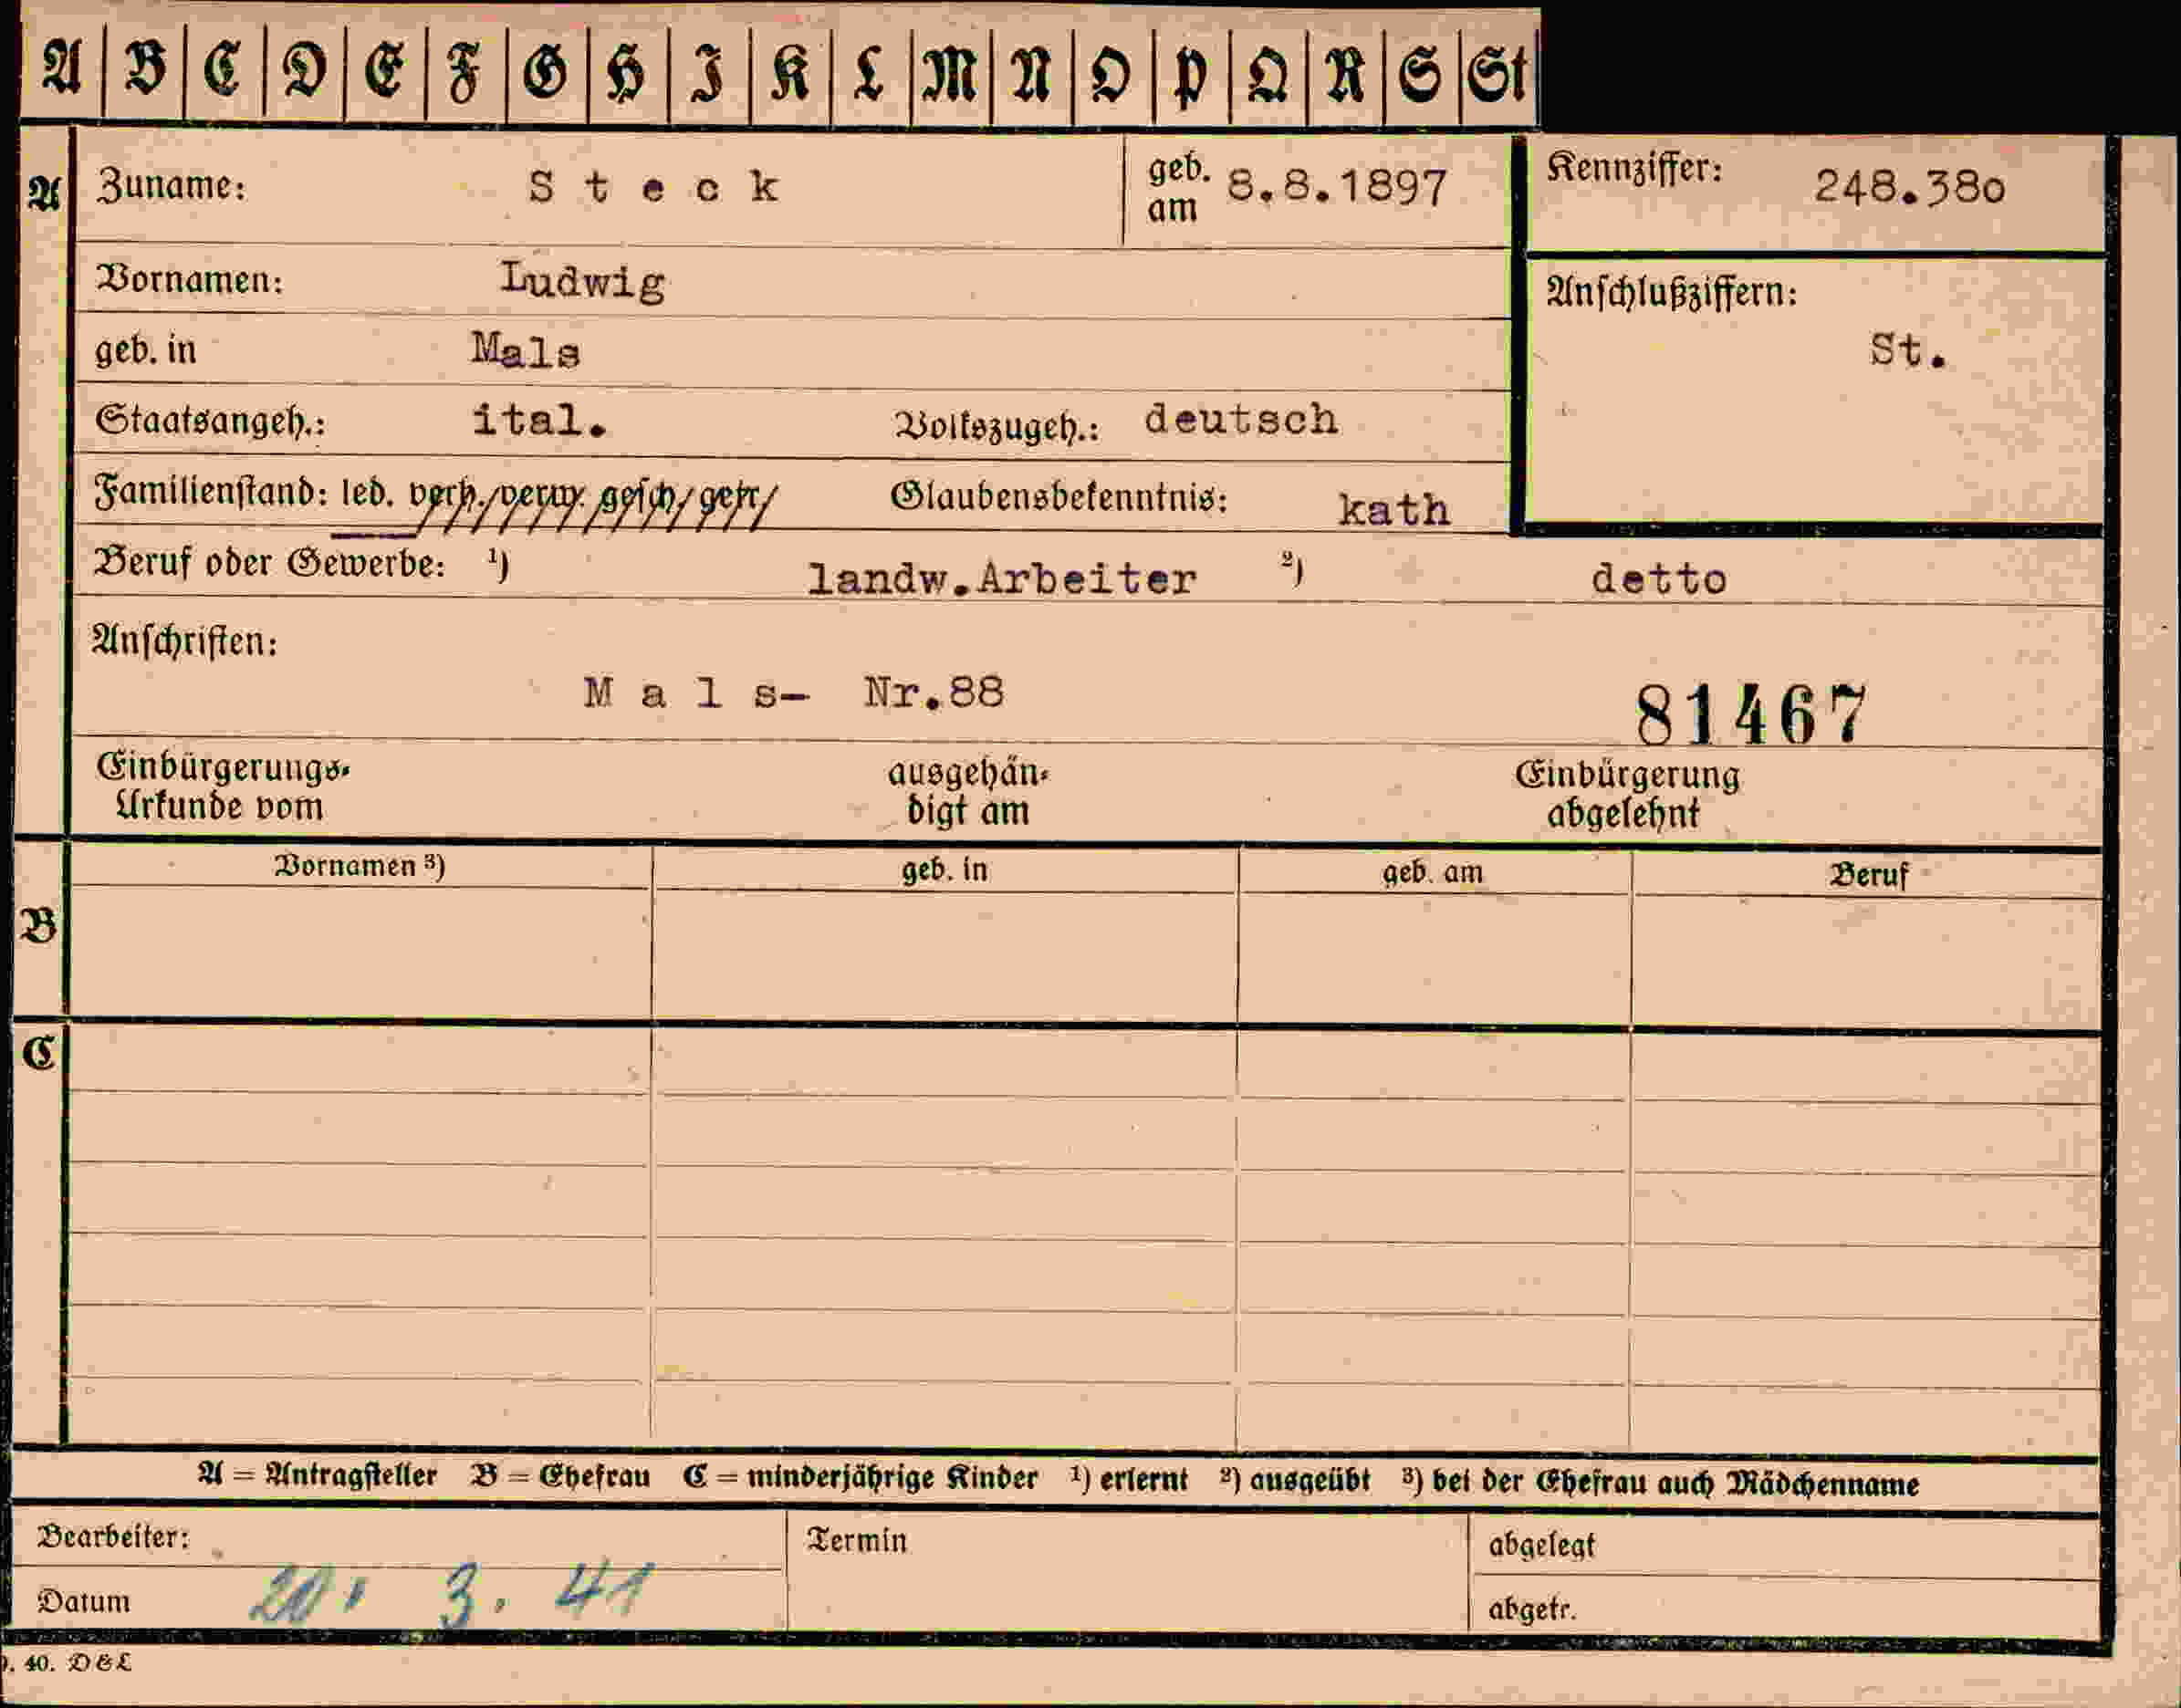 A B C D E F G H I K L M N O P Q R S St
A Zuname: Steck geb. am 8.8.1897 Kennziffer: 248.380
Vornamen: Ludwig Anschlußziffern:
geb. in Mals St.
Staatsangeh.: ital. Volkszugeh.: deutsch
Familienstand: led. verh. verw. gesch. getr. Glaubensbekenntnis: kath
Beruf oder Gewerbe: ¹) landw.Arbeiter ²) detto
Anschriften:
Mals- Nr.88 81467
Einbürgerungs- ausgehän- Einbürgerung
Urkunde vom digt am abgelehnt
Vornamen ³) geb. in geb. am Beruf
B
C
A = Antragsteller B = Ehefrau C = minderjährige Kinder ¹) erlernt ²) ausgeübt ³) bei der Ehefrau auch Mädchenname
Bearbeiter: Termin abgelegt
Datum 20. 3. 41 abgetr.
40. D & L